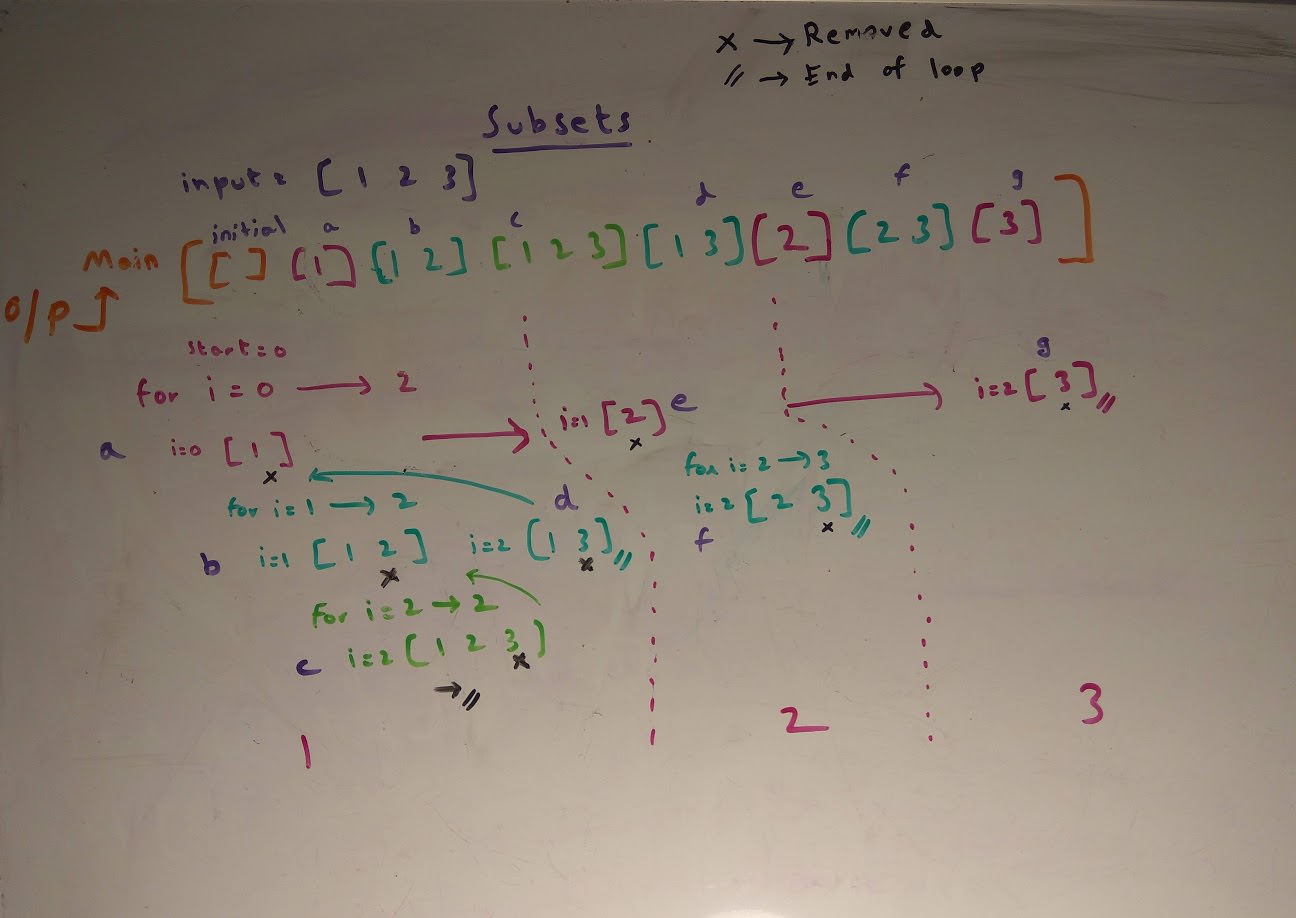 x → Removed
// → End of loop
Subsets
input = [ 1 2 3 ]
initial a b c d e f g
Main [ [ ] [ 1 ] [ 1 2 ] [ 1 2 3 ] [ 1 3 ] [ 2 ] [ 2 3 ] [ 3 ] ]
o/p
start = 0
for i = 0 → 2
a i=0 [ 1 ] x
for i = 1 → 2
b i=1 [ 1 2 ] x
d
i=2 [ 1 3 ] x //
for i = 2 → 2
c i=2 [ 1 2 3 ] x
→ //
1
i=1 [ 2 ] e x
for i = 2 → 3
i=2 [ 2 3 ] x //
f
2
g
i=2 [ 3 ] x //
3